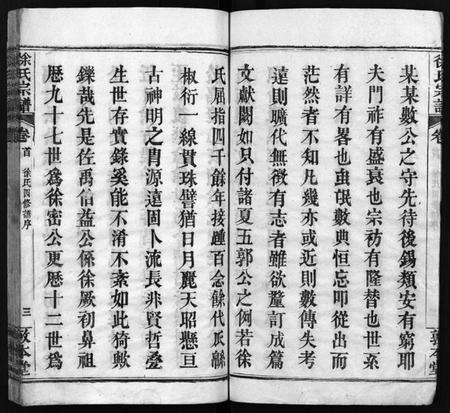 某某數公之守先待後錫類安有窮耶
夫門祚有盛衰也宗祊有隆替也世系
有詳有畧也虫氓數典恒忘叩從出而
茫然者不知凡幾亦或近則數傳失考
遠則曠代無徵有志者雖欲釐訂成篇
文獻闕如只付諸夏五郭公之例若徐
氏屈指四千餘年接踵百念餘代瓜緜
椒衍一線貫珠譬猶日月麗天昭懸亘
古神明之胄源遠固卜流長非賢哲叠
生世存實錄奚能不淆不紊如此猗歟
鑠哉先是佐禹伯益公係徐厥初鼻祖
歷九十七世爲徐密公更歷十二世爲
徐氏宗譜
卷首
徐氏四修譜序
三
敦本堂
徐氏宗譜
卷
敦本堂